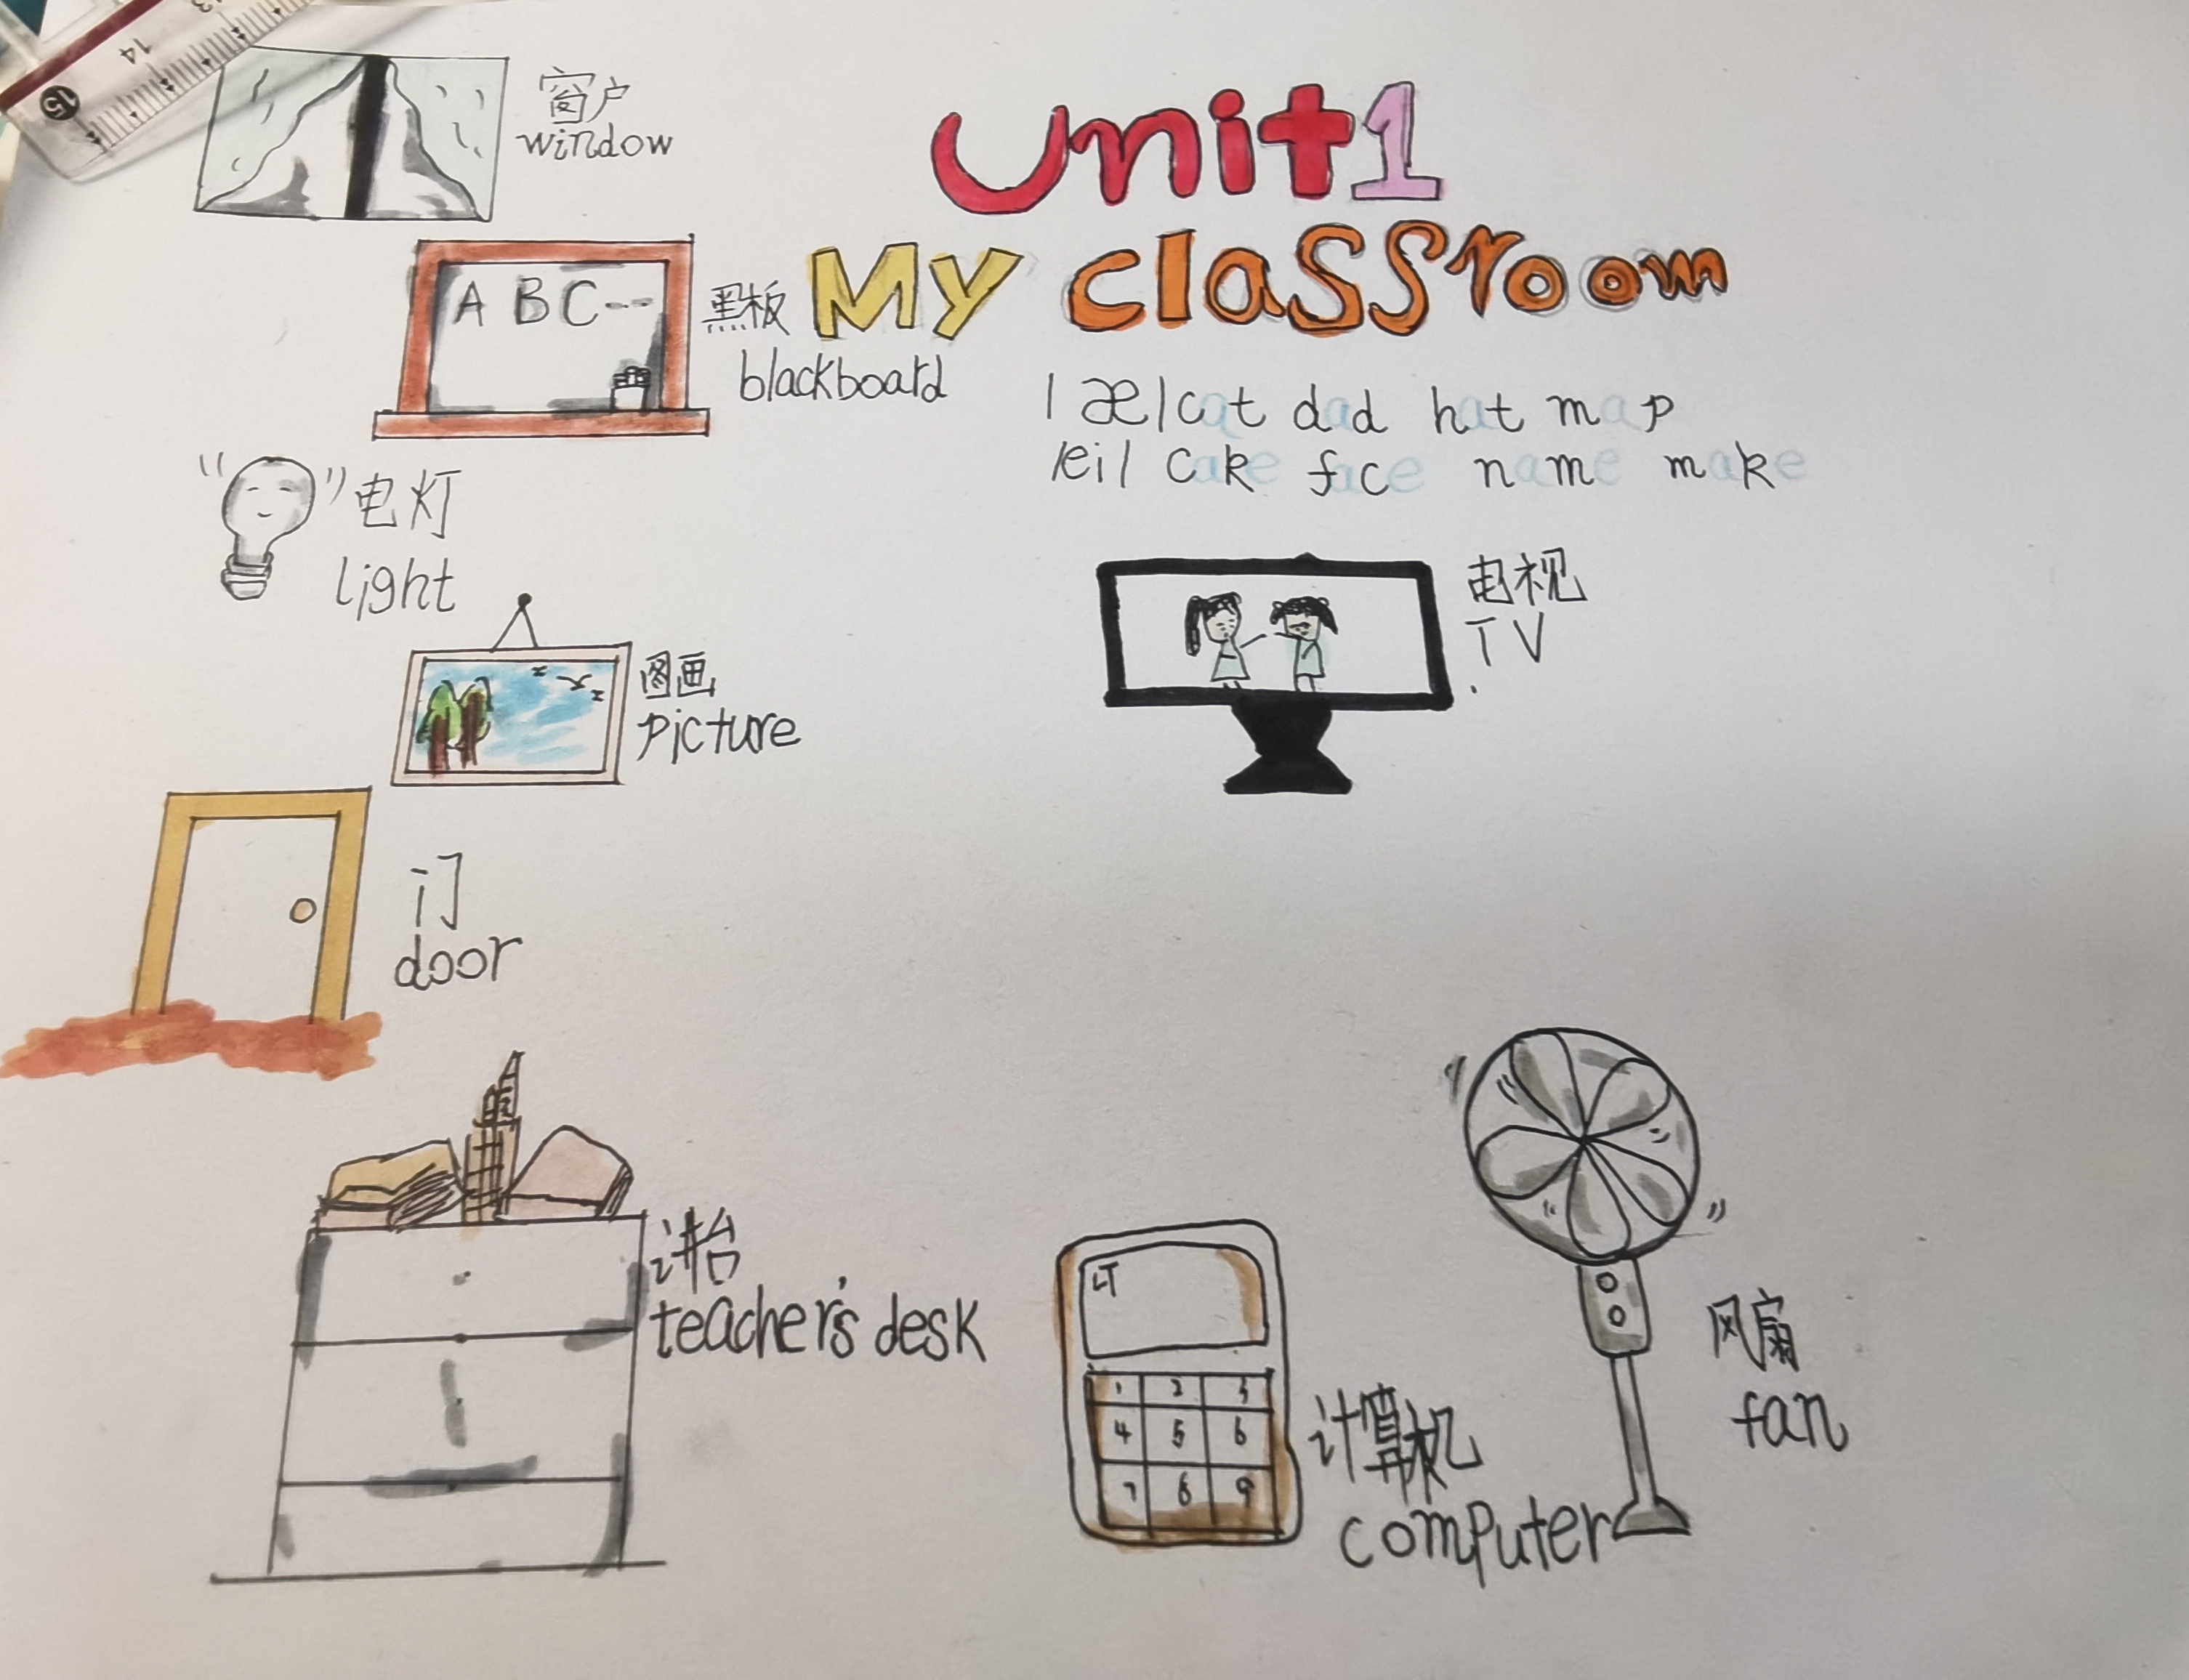 13
14
15
窗户
window
Unit1
My classroom
A B C---
黑板
blackboard
/æ/ cat dad hat map
/ei/ cake face name make
电灯
light
电视
TV
图画
picture
门
door
讲台
teacher's desk
LT
1 2 3
4 5 6
7 8 9
计算机
computer
风扇
fan